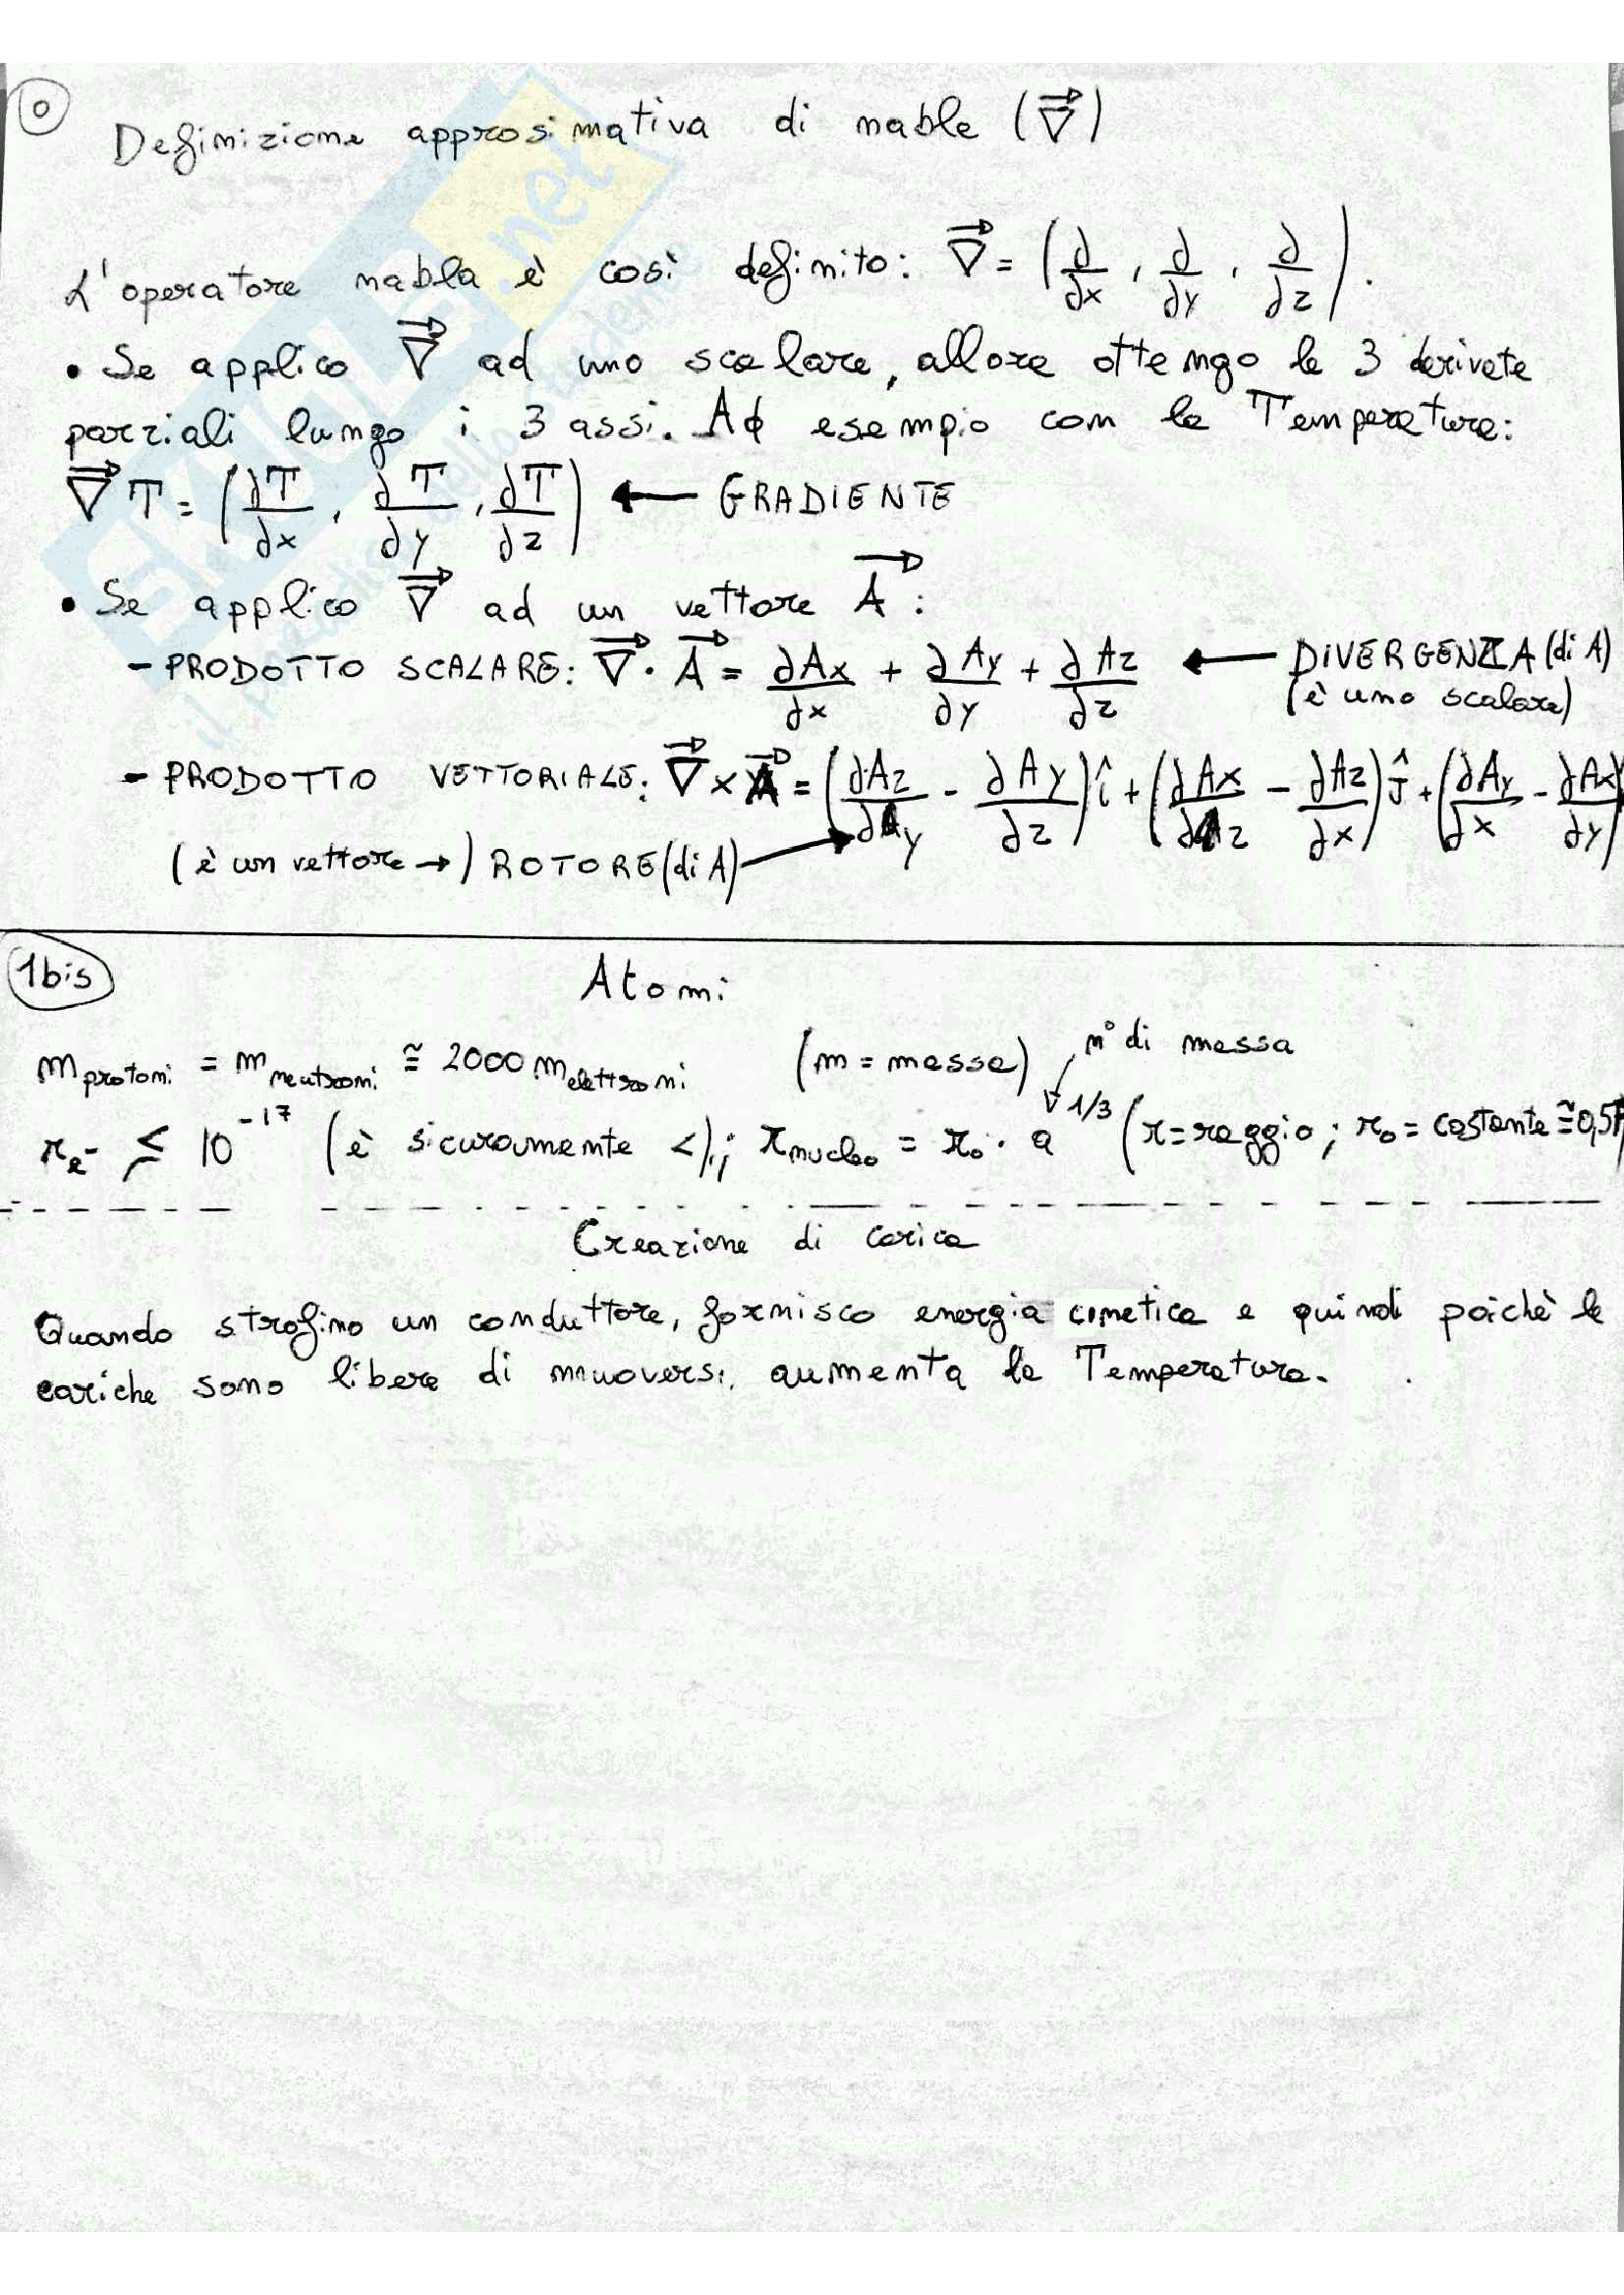 0
Definizione approssimativa di nabla (∇⃗)
L'operatore nabla è così definito: ∇⃗ = (∂/∂x, ∂/∂y, ∂/∂z).
• Se applico ∇⃗ ad uno scalare, allora ottengo le 3 derivate
parziali lungo i 3 assi. Ad esempio con la Temperatura:
∇⃗T = (∂T/∂x, ∂T/∂y, ∂T/∂z) ← GRADIENTE
• Se applico ∇⃗ ad un vettore A⃗:
- PRODOTTO SCALARE: ∇⃗·A⃗ = ∂Ax/∂x + ∂Ay/∂y + ∂Az/∂z ← DIVERGENZA (di A)
(è uno scalare)
- PRODOTTO VETTORIALE: ∇⃗×A⃗ = (∂Az/∂y - ∂Ay/∂z)î + (∂Ax/∂z - ∂Az/∂x)ĵ + (∂Ay/∂x - ∂Ax/∂y)
(è un vettore →) ROTORE (di A)
1bis
Atomi
m protoni = m neutroni ≅ 2000 m elettroni (m = massa) n° di massa
r e- ≤ 10^-17 (è sicuramente <); r nucleo = r0 · a^1/3 (r = raggio; r0 = costante ≅ 0,5
Creazione di carica
Quando strofino un conduttore, fornisco energia cinetica e quindi poichè le
cariche sono libere di muoversi, aumenta la Temperatura.